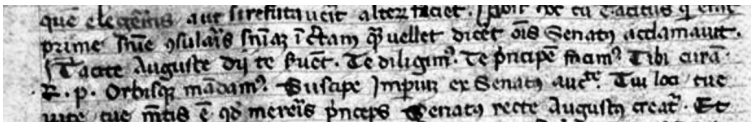 que elegeris aut si refutaveris alter faciet. post hoc cu Tacitus q erat
prime snie 9sularis sniam i ctam qua vellet dicet ois Senatus acclamavit.
Tacite Auguste dij te svent. Te diligim9. Te principe facim9. Tibi cura
R. p. Orbisq mandam9. Suscipe Imperiu ex Senatus aucte. Tui loci tue
vite tue mentis e qd mereris princeps Senatus recte Augustus creatr. Et